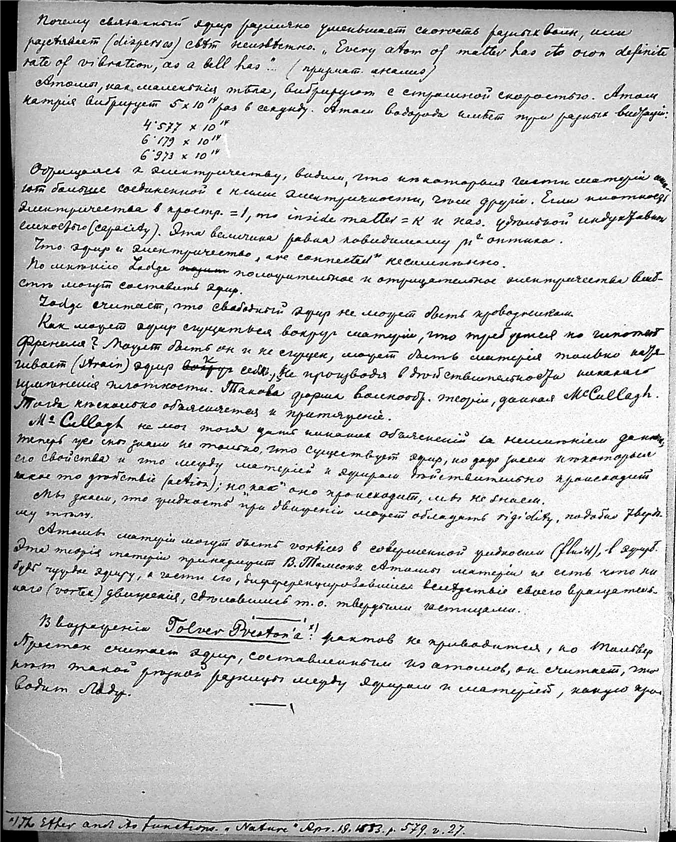 Почему связанный эфир различно уменьшает скорость разных волн, или
разсѣяваетъ (disperses) свѣтъ неизвѣстно. „Every atom of matter has its own definite
rate of vibration, as a bell has“... (
Атомы, как маленькія тѣла, вибрируют с страшной скоростью. Атом
натрія вибрирует 5×10¹⁴ раз в секунду. Атом водорода имѣет три разных вибраціи:
4·577 × 10¹⁴
6·179 × 10¹⁴
6·973 × 10¹⁴
Обращаясь к электричеству, видим, что нѣкоторыя части матеріи
больше соединенной с ними электричности, чѣм другія. Если плотность
электричества в простр. = 1, то inside matter = K и наз. удѣльной индуктивной
(capacity). Эта величина равна повидимому μ² оптика.
Что эфир и электричество „are connected“ несомнѣнно.
По мнѣнію Lodge положительное и отрицательное электричества вмѣ-
стѣ могут составлять эфир.
Lodge считает, что свободный эфир не может быть проводником.
Как может эфир сгущаться вокруг матеріи, что требуется по гипотезѣ
Френеля? Может быть он и не сгущен, может быть матерія только натя-
гивает (strain) эфир вокруг себя, не производя в дѣйствительности никакого
плотности. Такова форма волнообр. теоріи, данная McCullagh.
Тогда нѣсколько объясняется и притяженіе.
Mc Cullagh не мог тогда дать никаких объясненій за неимѣнием данных,
теперь уже мы знаем не только, что существует эфир, но даже знаем нѣкоторыя
его свойства и что между матеріей и эфиром дѣйствительно происходит
какое то дѣйствіе (action); но „как“ оно происходит, мы не знаем.
Мы знаем, что жидкость при движеніи может обладать rigidity, подобно тверд
му тѣлу.
Атомы матеріи могут быть vortices в совершенной жидкости (fluid), в эфирѣ.
Эта теорія матеріи принадлежит В. Томсону. Атомы матеріи не есть что ни
будь чуждое эфиру, а части его, дифференцировавшіяся вслѣдствіе своего вращатель-
наго (vortex) движенія, сдѣлавшись т. о. твердыми частицами.
В возраженіи Tolver Preston'a *) фактов не приводится, но Тольвер
Престон считает эфир, составленным из атомов, он считает, что
нѣт такой рѣзкой разницы между эфиром и матеріей, какую про-
водит Лодж.
*) The Ether and its functions. „Nature“ Apr. 19. 1883. p. 579. v. 27.